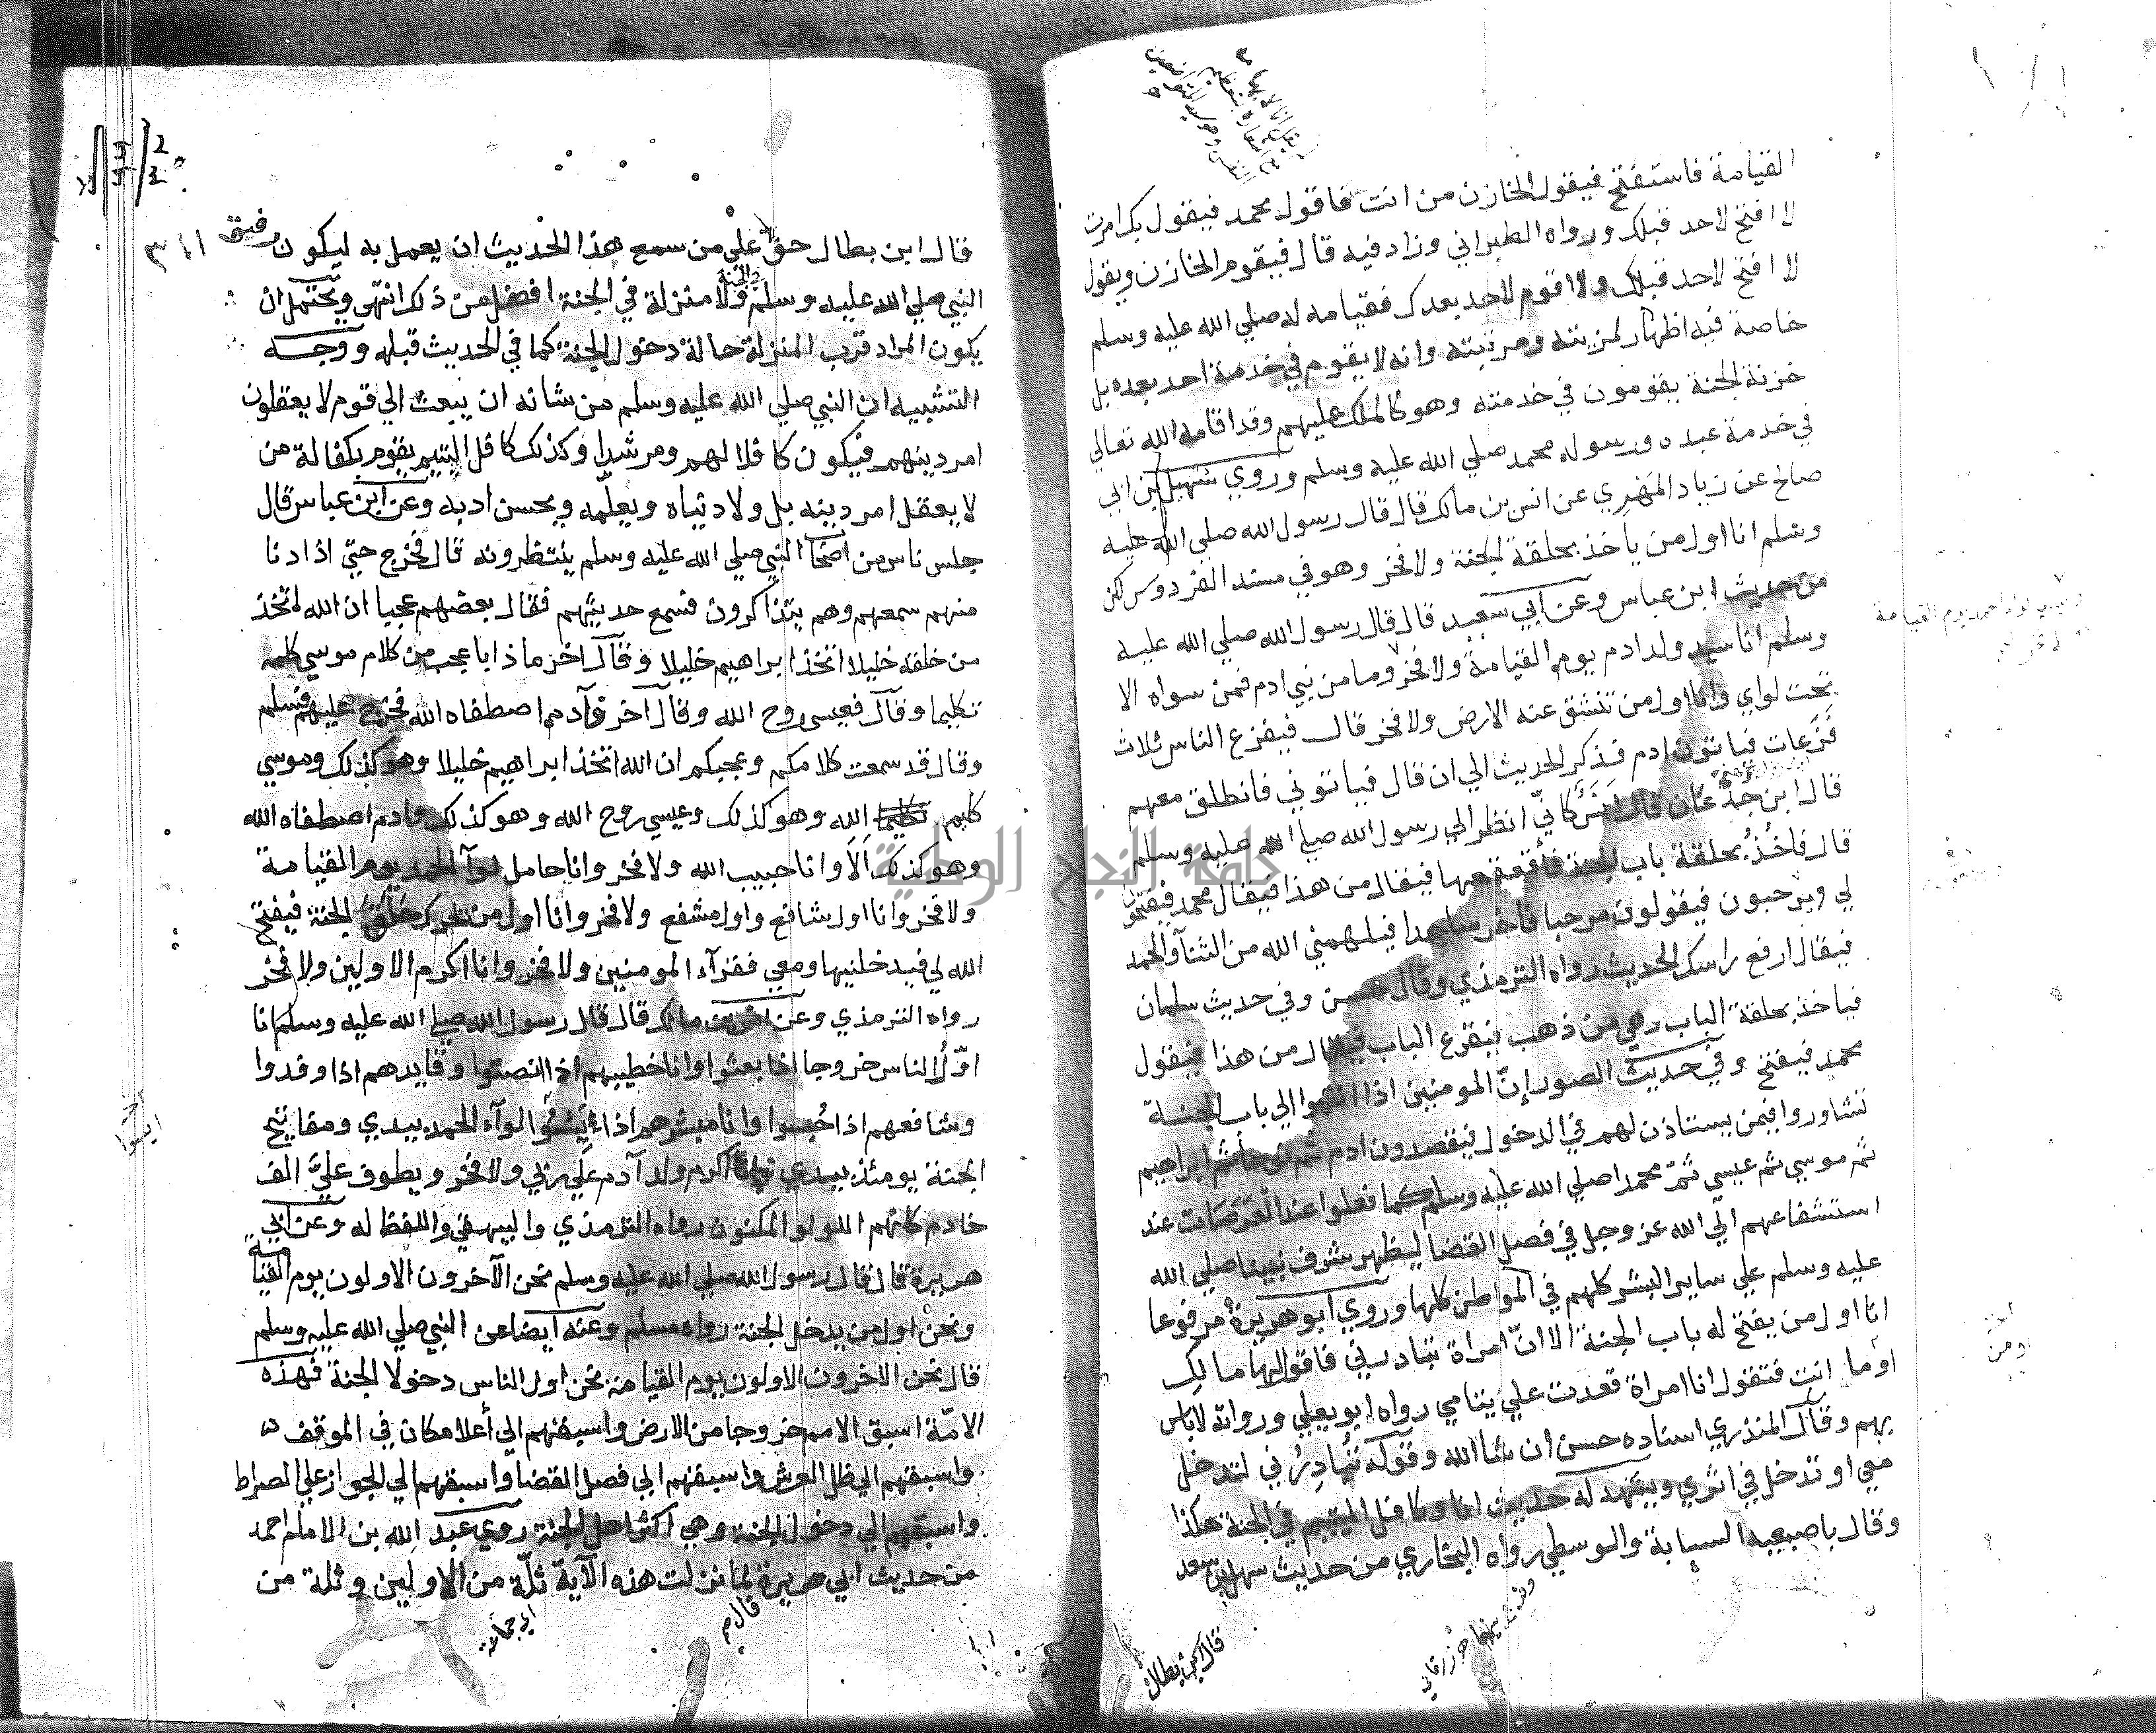 القيامة فاستفتح فيقول الخازن من انت فاقول محمد فيقول بك امرت
لا افتح لاحد قبلك ورواه الطبراني وزاد فيه قال فيقوم الخازن ويقول
لا افتح لاحد قبلك ولا اقوم لاحد بعدك فقيامه له صلي الله عليه وسلم
خاصة فيه اظهار لمزيته ومرتبته وانه لا يقوم في خدمة احد بعده بل
خزنة الجنة يقومون في خدمته وهو كالملك عليهم وقد اقامه الله تعالي
في خدمة عبده ورسوله محمد صلي الله عليه وسلم وروي سهيل بن ابي
صالح عن زياد المهري عن انس بن مالك قال قال رسول الله صلي الله عليه
وسلم انا اول من ياخذ بحلقة الجنة ولا فخر وهو في مسند الفردوس لكن
من حديث ابن عباس وعن ابي سعيد قال قال رسول الله صلي الله عليه
وسلم انا سيد ولد ادم يوم القيامة ولا فخر وما من نبي ادم فمن سواه الا
تحت لواي وانا اول من تنشق عنه الارض ولا فخر قال فيفزع الناس ثلاث
فزعات فياتون ادم فذكر الحديث الي ان قال فياتوني فانطلق معهم
قال ابن جدعان قال انس كاني انظر الي رسول الله صلي الله عليه وسلم
قال فاخذ بحلقة باب الجنة فاقعقعها فيقال من هذا فيقال محمد فيفتحون
لي ويرحبون فيقولون مرحبا فاخر ساجدا فيلهمني الله من الثنآ والحمد
فيقال ارفع راسك الحديث رواه الترمذي وقال حسن وفي حديث سلمان
فياخذ بحلقة الباب وهي من ذهب فيقرع الباب فيقال من هذا فيقول
محمد فيفتح وفي حديث الصور إنّ المومنين اذا انتهوا الي باب الجنة
تشاوروا فيمن يستاذن لهم في الدخول فيقصدون ادم ثم نوحا ثم ابراهيم
ثم موسي ثم عيسي ثم محمدا صلي الله عليه وسلم كما فعلوا عند العرصات عند
استشفاعهم الي الله عز وجل في فصل القضا ليظهر شرف نبينا صلي الله
عليه وسلم علي ساير البشر كلهم في المواطن كلها وروي ابو هريرة مرفوعا
انا اول من يفتح له باب الجنة الا انّ امراة تبادرني فاقول لها ما لك
او ما انت فتقول انا امراة قعدت علي يتامي رواه ابو يعلي ورواته لاباس
بهم وقال المنذري اسناده حسن ان شا الله وقوله تُبادِرُني لتدخل
معي او تدخل في اثري ويشهد له حديث انا وكافل اليتيم في الجنة هكذا
وقال باصبعيه السبابة والوسطي رواه البخاري من حديث سهل بن سعد
قال ابن بطال
قال ابن بطال حق علي من سمع هذا الحديث ان يعمل به ليكون رفيق
النبي صلي الله عليه وسلم ولا منزلة في الجنة افضل من ذلك انتهي ويحتمل ان
يكون المراد قرب المنزلة حالة دخول الجنة كما في الحديث قبله ووجه
التشبيه ان النبي صلي الله عليه وسلم من شانه ان يبعث الي قوم لا يعقلون
امر دينهم فيكون كافلا لهم ومرشدا وكذلك كافل اليتيم يقوم بكفالة من
لا يعقل امر دينه بل ولا دنياه ويعلّمه ويحسن ادبه وعن ابن عباس قال
جلس ناس من اصحاب النبي صلي الله عليه وسلم ينتظرونه قال فخرج حتي اذا دنا
منهم سمعهم وهم يتذاكرون فسمع حديثهم فقال بعضهم عجبا ان الله اتخذ
من خلقه خليلا اتخذ ابراهيم خليلا وقال اخر ماذا باعجب من كلام موسي كلمه
تكليما وقال فعيسي روح الله وقال اخر وآدم اصطفاه الله فخرج عليهم فسلم
وقال قد سمعت كلامكم وعجبكم ان الله اتخذ ابراهيم خليلا وهو كذلك وموسي
كليم الله وهو كذلك وعيسي روح الله وهو كذلك وادم اصطفاه الله
وهو كذلك ألا وانا حبيب الله ولا فخر وانا حامل لوآ الحمد يوم القيامة
ولا فخر وانا اول شافع واول مشفع ولا فخر وانا اول من يحرك حلق الجنة فيفتح
الله لي فيدخلنيها ومعي فقرآء المومنين ولا فخر وانا اكرم الاولين ولا فخر
رواه الترمذي وعن انس بن مالك قال قال رسول الله صلي الله عليه وسلم انا
اوّلُ الناس خروجا اذا بعثوا وانا خطيبهم اذا انصتوا وقايدهم اذا وفدوا
وشافعهم اذا حُبسوا وانا مبشرهم اذا يَئِسُوا لوآء الحمد بيدي ومفاتيح
الجنة يومئذ بيدي وانا اكرم ولد آدم علي ربي ولا فخر ويطوف عليّ الف
خادم كانهم اللولو المكنون رواه الترمذي والبيهقي واللفظ له وعن ابي
هريرة قال قال رسول الله صلي الله عليه وسلم نحن الآخرون الاولون يوم القيامة
ونحن اول من يدخل الجنة رواه مسلم وعنه ايضا عن النبي صلي الله عليه وسلم
قال نحن الاخرون الاولون يوم القيامة نحن اول الناس دخولا الجنة فهذه
الامّة اسبق الامم خروجا من الارض واسبقهم الي أعلا مكان في الموقف
واسبقهم الي ظل العرش واسبقهم الي فصل القضا واسبقهم الي الجواز علي الصراط
واسبقهم الي دخول الجنة وهي اكثر اهل الجنة روي عبد الله بن الامام احمد
من حديث ابي هريرة لما نزلت هذه الآية ثلّة من الاولين وثلة من
جامعة النجاح الوطنية